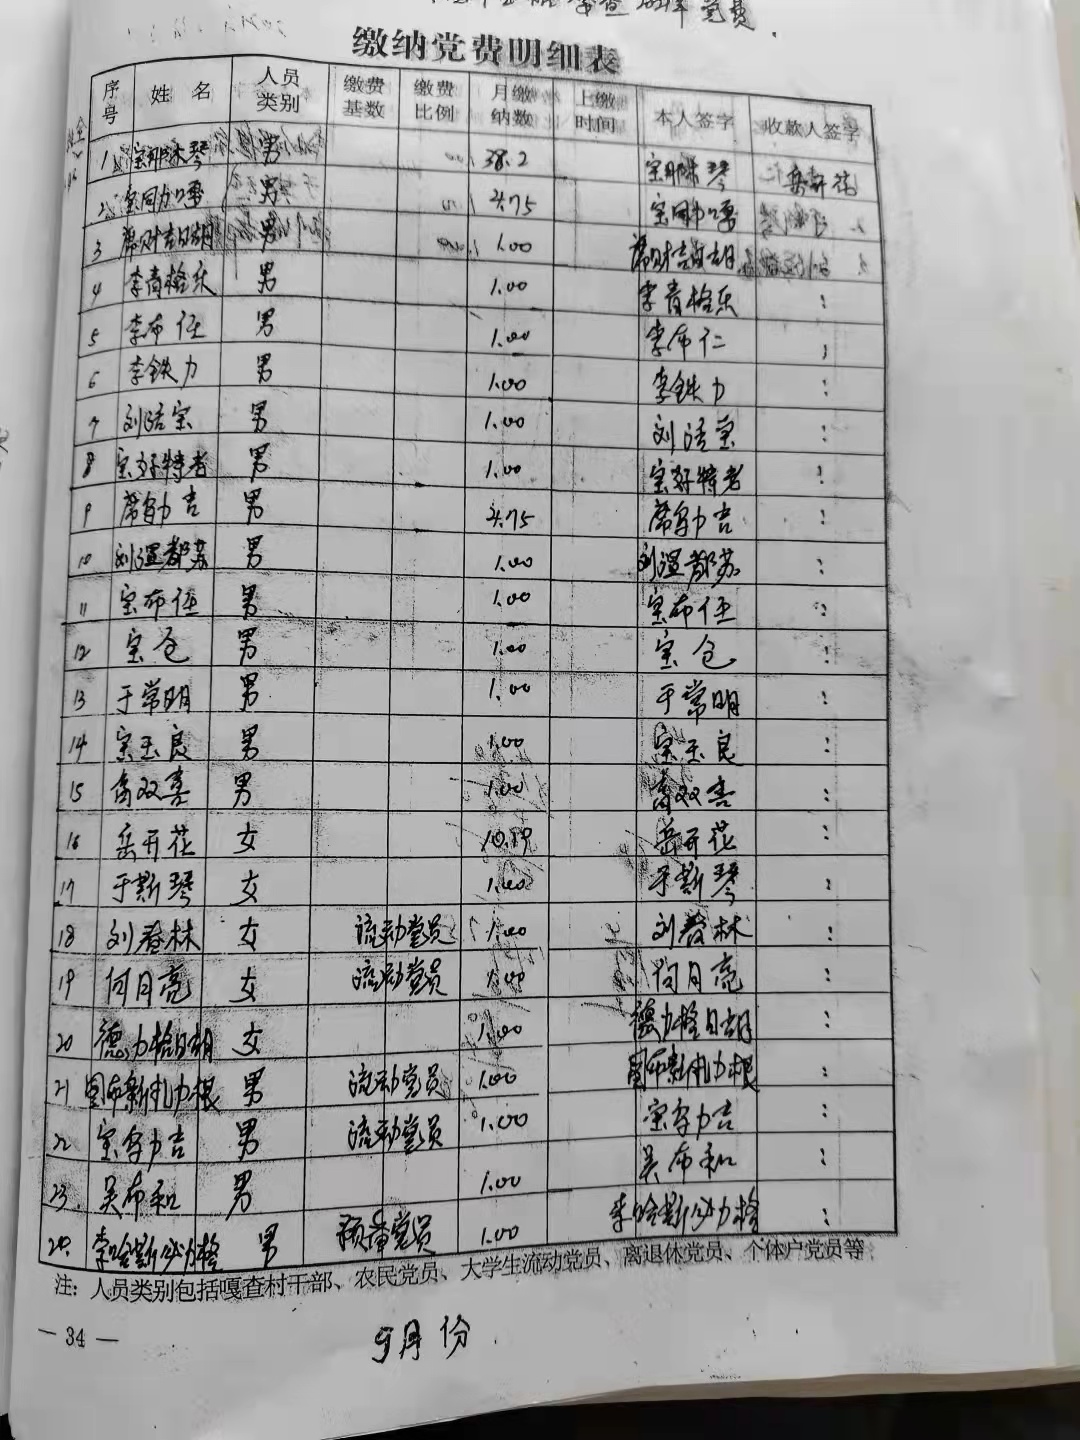 党费
缴纳党费明细表
序号 姓 名 人员类别 缴费基数 缴费比例 月缴纳数 上缴时间 本人签字 收款人签字
1 男 38.2 岳开花
2 男 4.75
3 男 1.00
4 李青格乐 男 1.00 李青格乐 :
5 李布仁 男 1.00 李布仁 :
6 李铁力 男 1.00 李铁力 :
7 刘活宝 男 1.00 刘活宝 :
8 宝好特老 男 1.00 宝好特老 :
9 男 4.75 :
10 刘温都苏 男 1.00 刘温都苏 :
11 宝布仁 男 1.00 宝布仁 :
12 宝仓 男 1.00 宝仓 :
13 于常明 男 1.00 于常明 :
14 宝玉良 男 1.00 宝玉良 :
15 双喜 男 1.00 双喜 :
16 岳开花 女 10.89 岳开花 :
17 于斯琴 女 1.00 于斯琴 :
18 刘春林 女 流动党员 1.00 刘春林 :
19 何月亮 女 流动党员 1.00 何月亮 :
20 德力格日胡 女 1.00 德力格日胡 :
21 图布新扎力根 男 流动党员 1.00 图布新扎力根 :
22 男 流动党员 1.00 :
23. 吴布和 男 1.00 吴布和 :
24. 李哈斯必力格 男 预备党员 1.00 李哈斯必力格 :
注：人员类别包括嘎查村干部、农民党员、大学生流动党员、离退休党员、个体户党员等
9月份
— 34 —